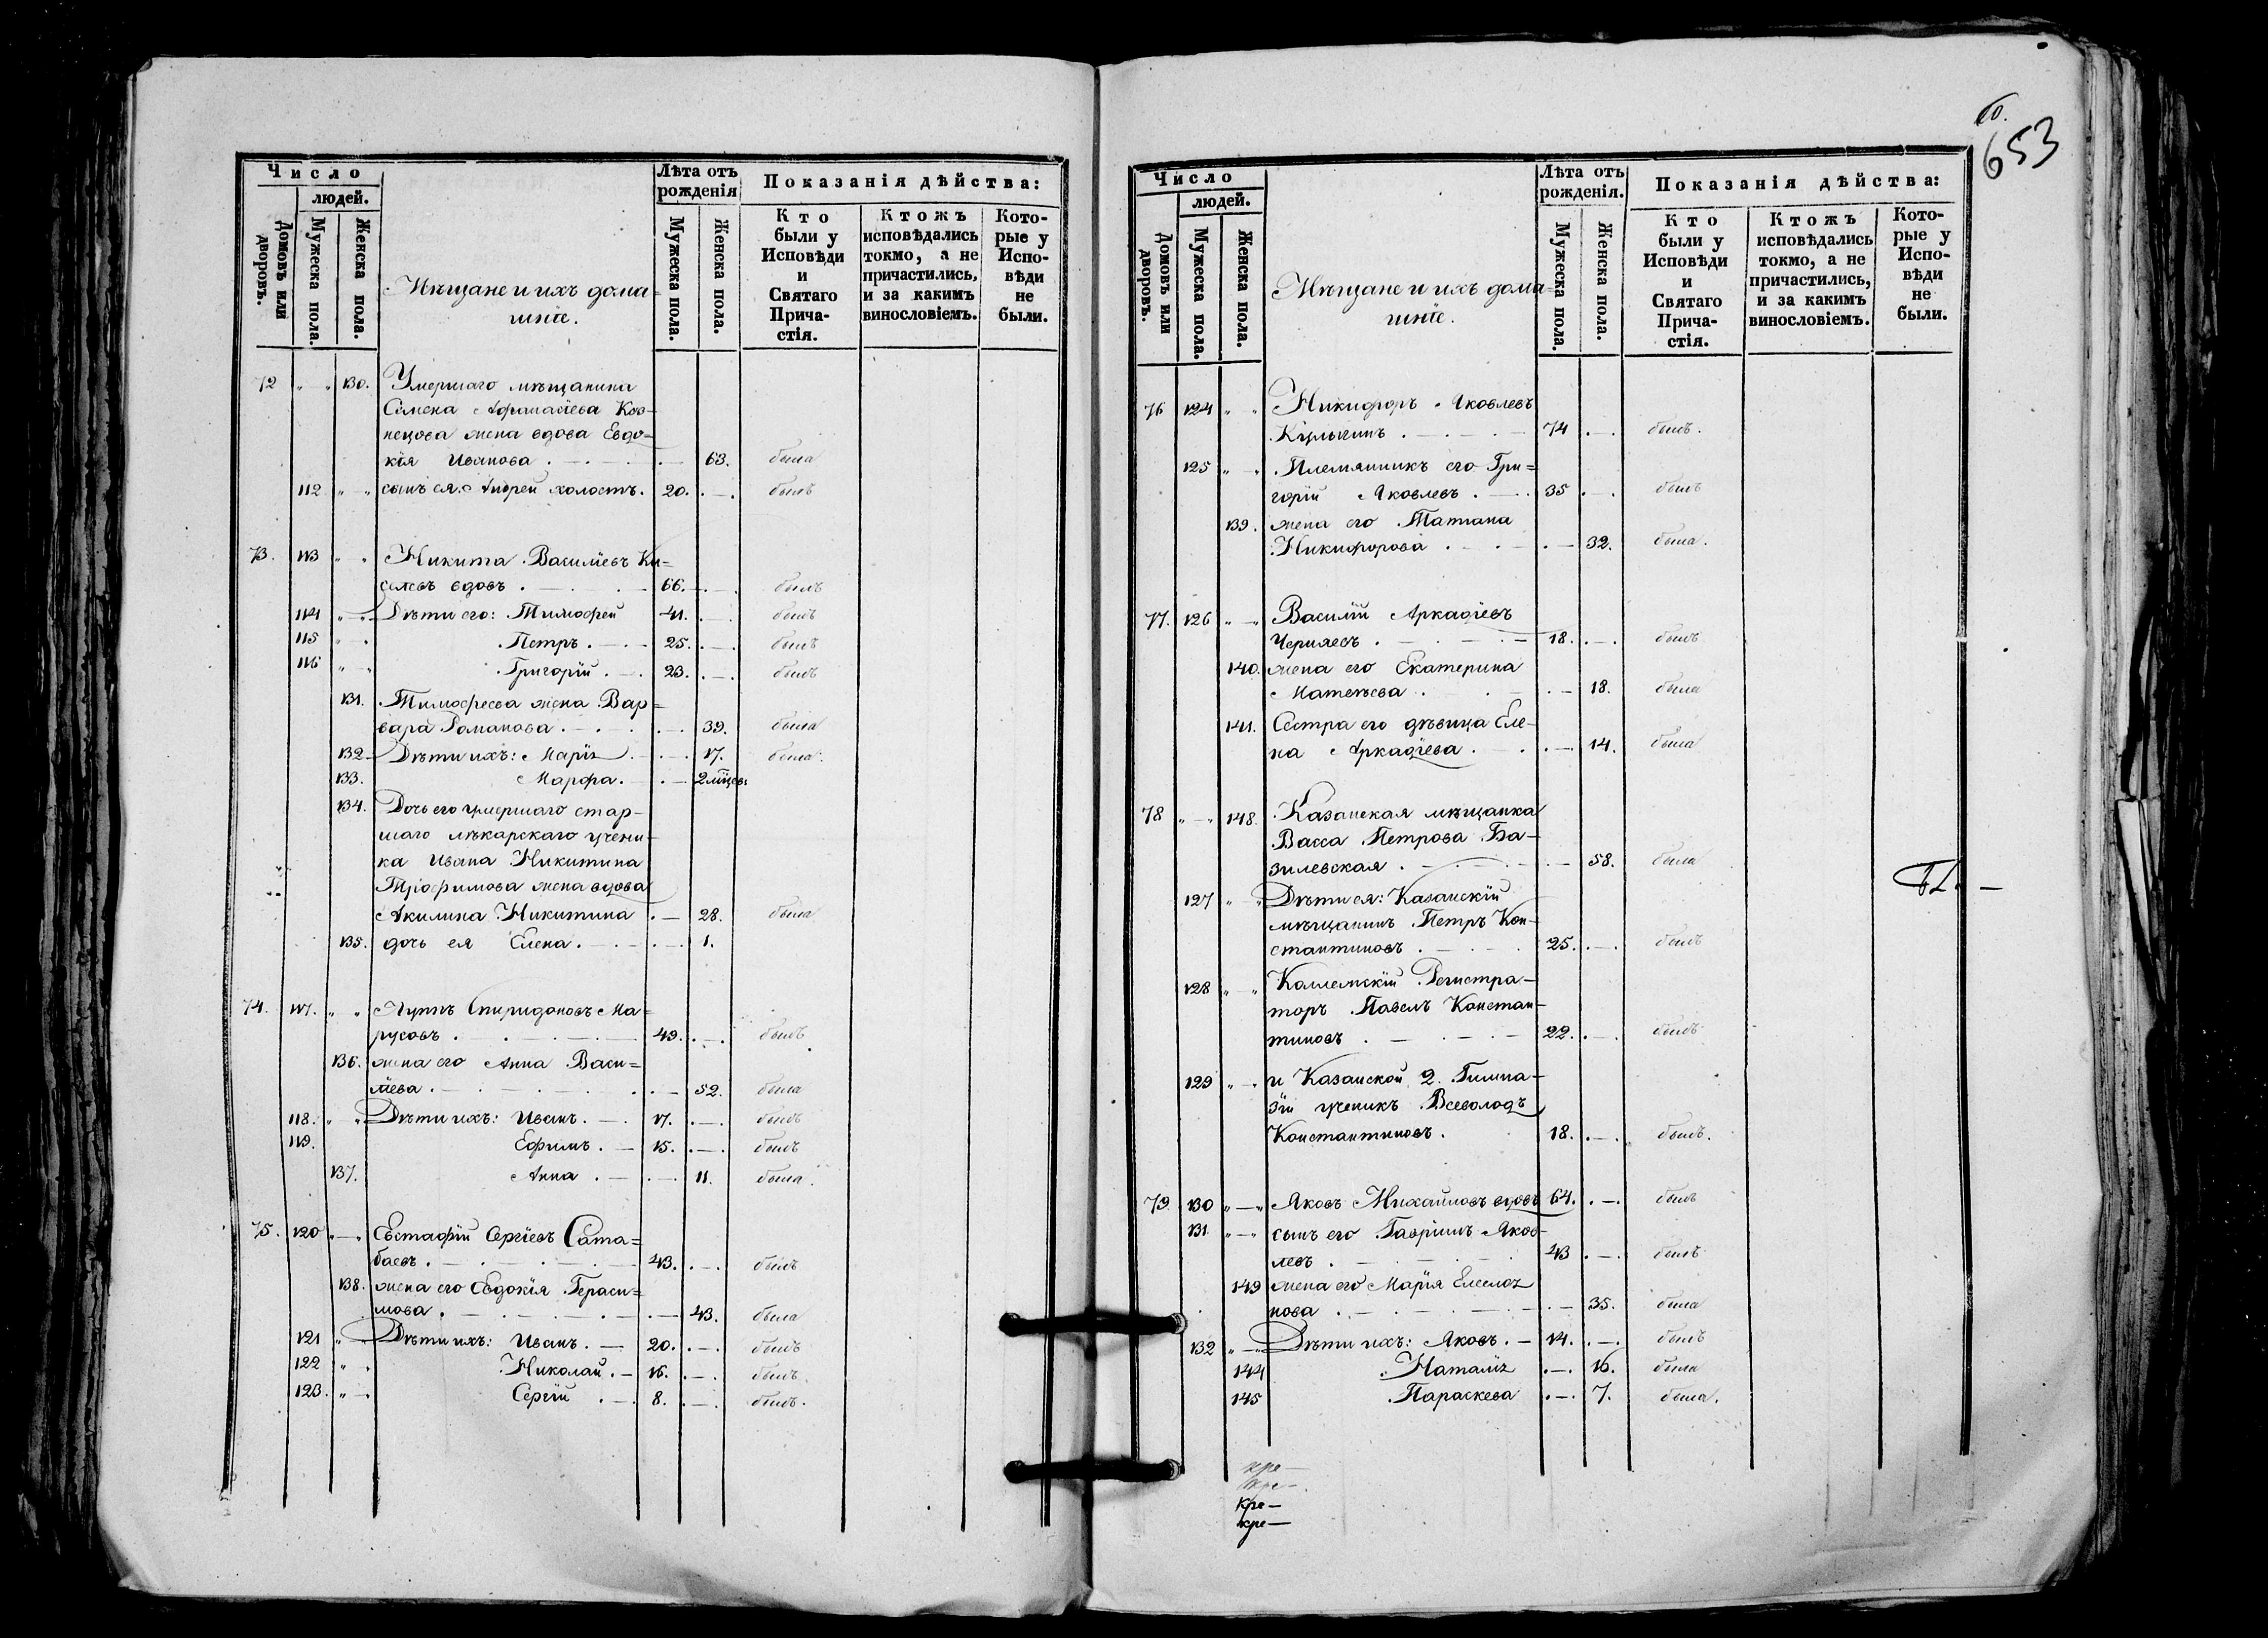 Число
людей.
Домовъ или дворовъ.
Мужеска пола.
Женска пола.
Мѣщане и ихъ дома=
шніе.
Лѣта отъ рожденія
Мужеска пола.
Женска пола.
Показанія дѣйства:
Кто были у Исповѣди и Святаго Прича-стія.
Ктожъ исповѣдались токмо, а не причастились, и за какимъ винословіемъ.
Кото-рые у Испо-вѣди не были.
72 " " 130. Умершаго мѣщанина
Семена Афанасіева Куз-
нецова жена вдова Евдо-
кія Иванова . — . — 63. была
112 " " сынъ ея Андрей холостъ. 20. . — . былъ
73. 113 " " Никита Василіевъ Ки=
селевъ вдовъ . — . — 66. — . былъ
114 " " Дѣти его: Тимофей 41. . — . былъ
115 " " Петръ . — . — 25. . — . былъ
116 " " Григорій . — . 23. . — . былъ
131. Тимофеева жена Вар=
вара Романова . — . . — 39. была
132 Дѣти ихъ: Марія . — 17. была.
133. Марфа. . — 2 мѣсяц.
134. Дочь его умершаго стар-
шаго лѣкарскаго учени-
ка Ивана Никитина
Трофимова жена вдова
Акилина Никитина . — 28. была
135. дочь ея Елена . — . — 1.
74. 117. " " Луппъ Спиридоновъ Ма=
русовъ . — . — 49. . — . былъ
136. жена его Анна Васи=
лїева . — . — . — 52. была
118. " " Дѣти ихъ: Иванъ . — . 17. . — . былъ
119. Ефимъ . — 15. . — . былъ
137. Анна . — . — 11. была.
75. 120 " — " Евстафій Сергіевъ Сата=
баевъ . — . — 43. . — . былъ
138. жена его Евдокія Гераси=
мова . — . — . — 43. была
121 " " Дѣти ихъ: Иванъ . — 20. . — . былъ
122 " " Николай . — 16. . — . былъ.
123. " — " Сергій . — . 8. . — . былъ.
653
Число
людей.
Домовъ или дворовъ.
Мужеска пола.
Женска пола.
Мѣщане и ихъ дома=
шніе.
Лѣта отъ рожденія.
Мужеска пола.
Женска пола.
Показанія дѣйства:
Кто были у Исповѣди и Святаго Прича-стія.
Ктожъ исповѣдались токмо, а не причастились, и за какимъ винословіемъ.
Кото-рые у Испо-вѣди не были.
76 124 " " Никифоръ Яковлевъ
. — . — 74 . — . былъ.
125 " " Племянникъ его Гри=
горій Яковлевъ . — . 35 . — . былъ
139. жена его Татіана
Никифорова . — . — 32. была.
77. 126 " — " Василій Аркадіевъ
Черняевъ . — . — 18. . — . былъ
140. жена его Екатерина
Матвѣева . — . — 18. была
141. Сестра его дѣвица Еле-
на Аркадіева . — . — 14. была
78 " — " 148. Казанская мѣщанка
Васса Петрова Ба-
зилевская . — . — 58. была
127 " " Дѣти ея: Казанскій
мѣщанинъ Петръ Кон-
стантиновъ . — . 25. . — . былъ
128 " " Коллежскій Регистра-
торъ Павелъ Констан-
тиновъ . — . — 22. . — . былъ
129 " — " и Казанской 2. Гимна-
зіи ученикъ Всеволодъ
Константиновъ . 18. . — . былъ.
79 130 " — " Яковъ Михайловъ вдовъ 64. . — . былъ
131 " — " сынъ его Гавріилъ Яков-
левъ . — . — 43 . — . былъ
149 жена его Марія
нова . — . — . — 35. была
132 " — " Дѣти ихъ: Яковъ . — 14. . — . былъ
144 Наталія . — . 16. была
145 Параскева . — . 7. была.
кре —
кре —
кре —
кре —